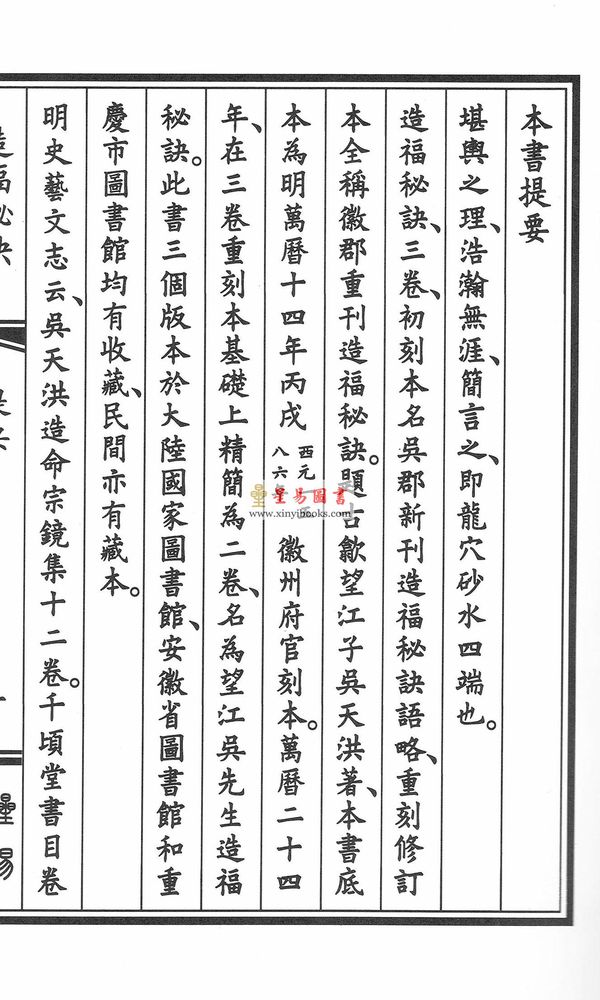 本書提要
堪輿之理、浩瀚無涯、簡言之、即龍穴砂水四端也。
造福秘訣、三卷、初刻本名吳郡新刊造福秘訣語略、重刻修訂
本全稱徽郡重刊造福秘訣。題古歙望江子吳天洪著、本書底
本為明萬曆十四年丙戌 西元 八六 徽州府官刻本。萬曆二十四
年、在三卷重刻本基礎上精簡為二卷、名為望江吳先生造福
秘訣。此書三個版本於大陸國家圖書館、安徽省圖書館和重
慶市圖書館均有收藏、民間亦有藏本。
明史藝文志云、吳天洪造命宗鏡集十二卷。千頃堂書目卷
造福秘訣
星易圖書
www.xinyibooks.com
星易